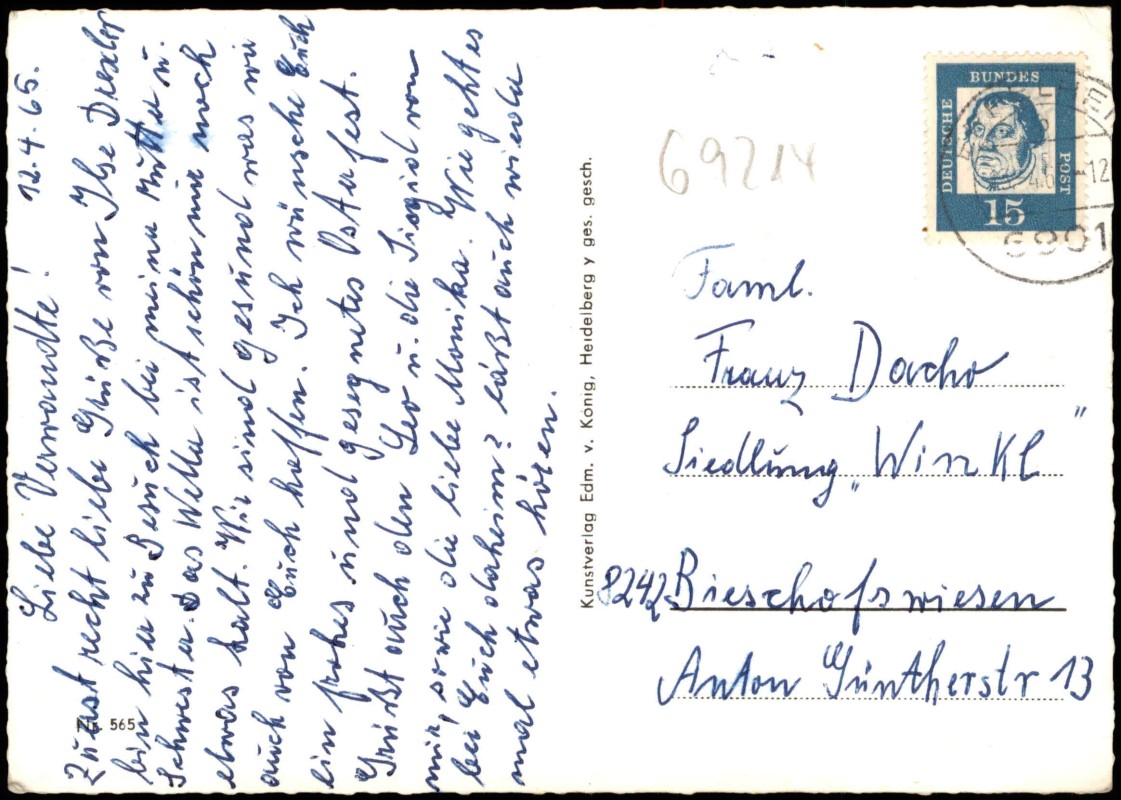 12.4.65.
Liebe Verwandte!
Zuerst recht liebe Grüße von Ilse Drexler
bin hier zu Besuch bei meiner Mutter u.
Schwester. Das Wetter ist schön nur noch
etwas kalt. Wir sind gesund was wir
auch von Euch hoffen. Ich wünsche Euch
ein frohes und gesegnetes Osterfest.
Grüßt auch den Leo u. die Sigrid von
mir, sowie die liebe Monika. Wie geht es
bei Euch daheim? Laßt auch wieder
mal etwas hören.
Nr. 565
Kunstverlag Edm. v. König, Heidelberg y ges. gesch.
69214
DEUTSCHE
BUNDES
POST
15
6901
Faml.
Franz Dacho
Siedlung „Winkl"
8242 Bieschofswiesen
Anton Güntherstr 13